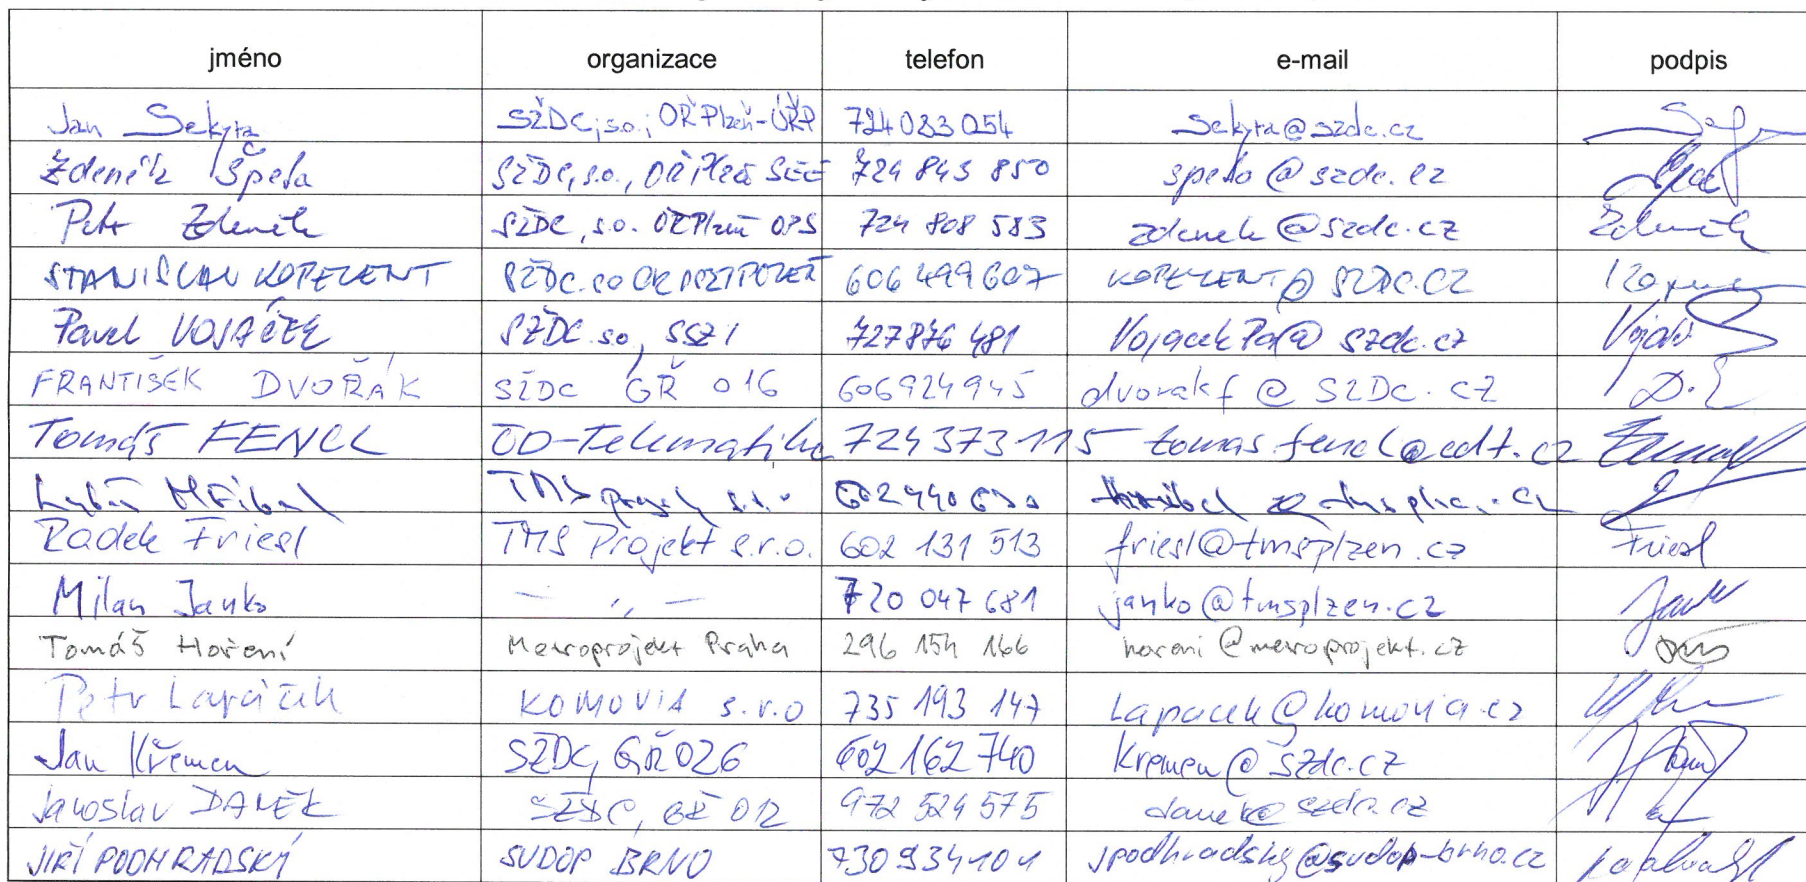 jméno organizace telefon e-mail podpis
Jan Sekyra SŽDC, s.o., OŘ Plzeň-ÚŘP 724 083 054 Sekyra@szdc.cz
Zdeněk Špeta SŽDC, s.o., OŘ Plzeň SEE 724 843 850 speta@szdc.cz
Petr Zdeněk SŽDC, s.o. OŘ Plzeň OPS 724 808 583 zdenek@szdc.cz Zdeněk
STANISLAV KOPEZENT SŽDC. so 606 499 607 KOPEZENT@SZDC.CZ
Pavel VOJÁČEK SŽDC so, SSZ 1 727876 481 VojacekPa@szdc.cz
FRANTIŠEK DVOŘÁK SŽDC GŘ 016 606924945 dvorakf@SZDC.CZ
Tomáš FENCL ČD-Telematika 724 373 115 tomas.fencl@cdt.cz
TMS
Radek Friesl TMS Projekt s.r.o. 602 131 513 friesl@tmsplzen.cz Friesl
Milan Janko — ,, — 720 047 681 janko@tmsplzen.cz
Tomáš Hoření Metroprojekt Praha 296 154 166 horeni@metroprojekt.cz
Petr Lapáček KOMOVIA s.r.o 735 193 147 Lapacek@komovia.cz
Jan Křemen SŽDC, GŘ 026 602 162 740 Kremen@szdc.cz
Jaroslav DANĚK SŽDC, GŘ 012 972 524 575 danek@szdc.cz
JIŘÍ PODHRADSKÝ SUDOP BRNO 730 934 101 jpodhradsky@sudop-brno.cz